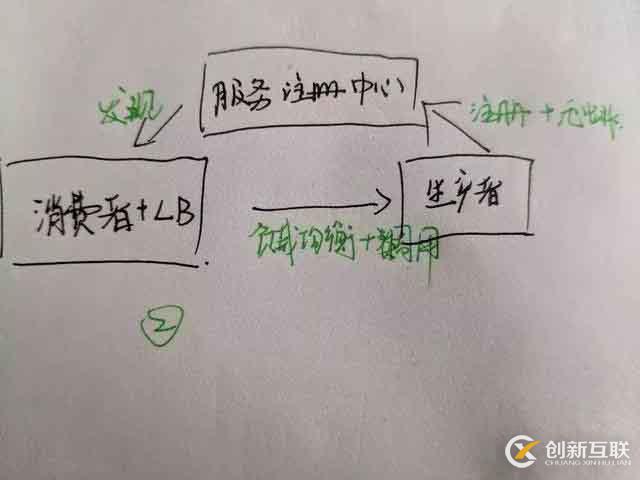 服务注册中心
发现
注册+心跳
消费者+LB
生产者
负载均衡+调用
②
创新互联
CHUANG XIN HU LIAN